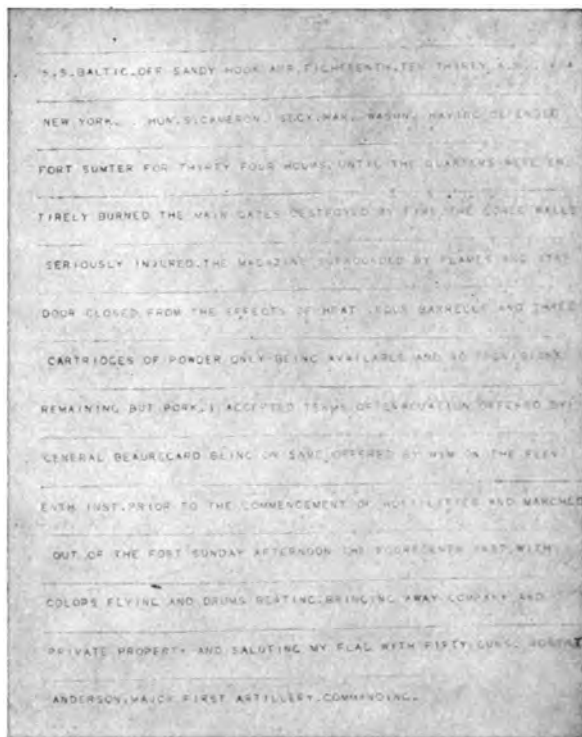 S.S.BALTIC.OFF SANDY HOOK APR.EIGHTEENTH.TEN THIRTY A.M. .VIA
NEW YORK. . HON.S.CAMERON. SECY.WAR. WASHN. HAVING DEFENDED
FORT SUMTER FOR THIRTY FOUR HOURS.UNTIL THE QUARTERS WERE EN
TIRELY BURNED THE MAIN GATES DESTROYED BY FIRE.THE GORGE WALLS
SERIOUSLY INJURED.THE MAGAZINE SURROUNDED BY FLAMES AND ITS
DOOR CLOSED FROM THE EFFECTS OF HEAT .FOUR BARRELLS AND THREE
CARTRIDGES OF POWDER ONLY BEING AVAILABLE AND NO PROVISIONS
REMAINING BUT PORK.I ACCEPTED TERMS OF EVACUATION OFFERED BY
GENERAL BEAUREGARD BEING ON SAME OFFERED BY HIM ON THE ELEV
ENTH INST.PRIOR TO THE COMMENCEMENT OF HOSTILITIES AND MARCHED
OUT OF THE FORT SUNDAY AFTERNOON THE FOURTEENTH INST.WITH
COLORS FLYING AND DRUMS BEATING.BRINGING AWAY COMPANY AND
PRIVATE PROPERTY AND SALUTING MY FLAG WITH FIFTY GUNS. ROBERT
ANDERSON.MAJOR FIRST ARTILLERY.COMMANDING.